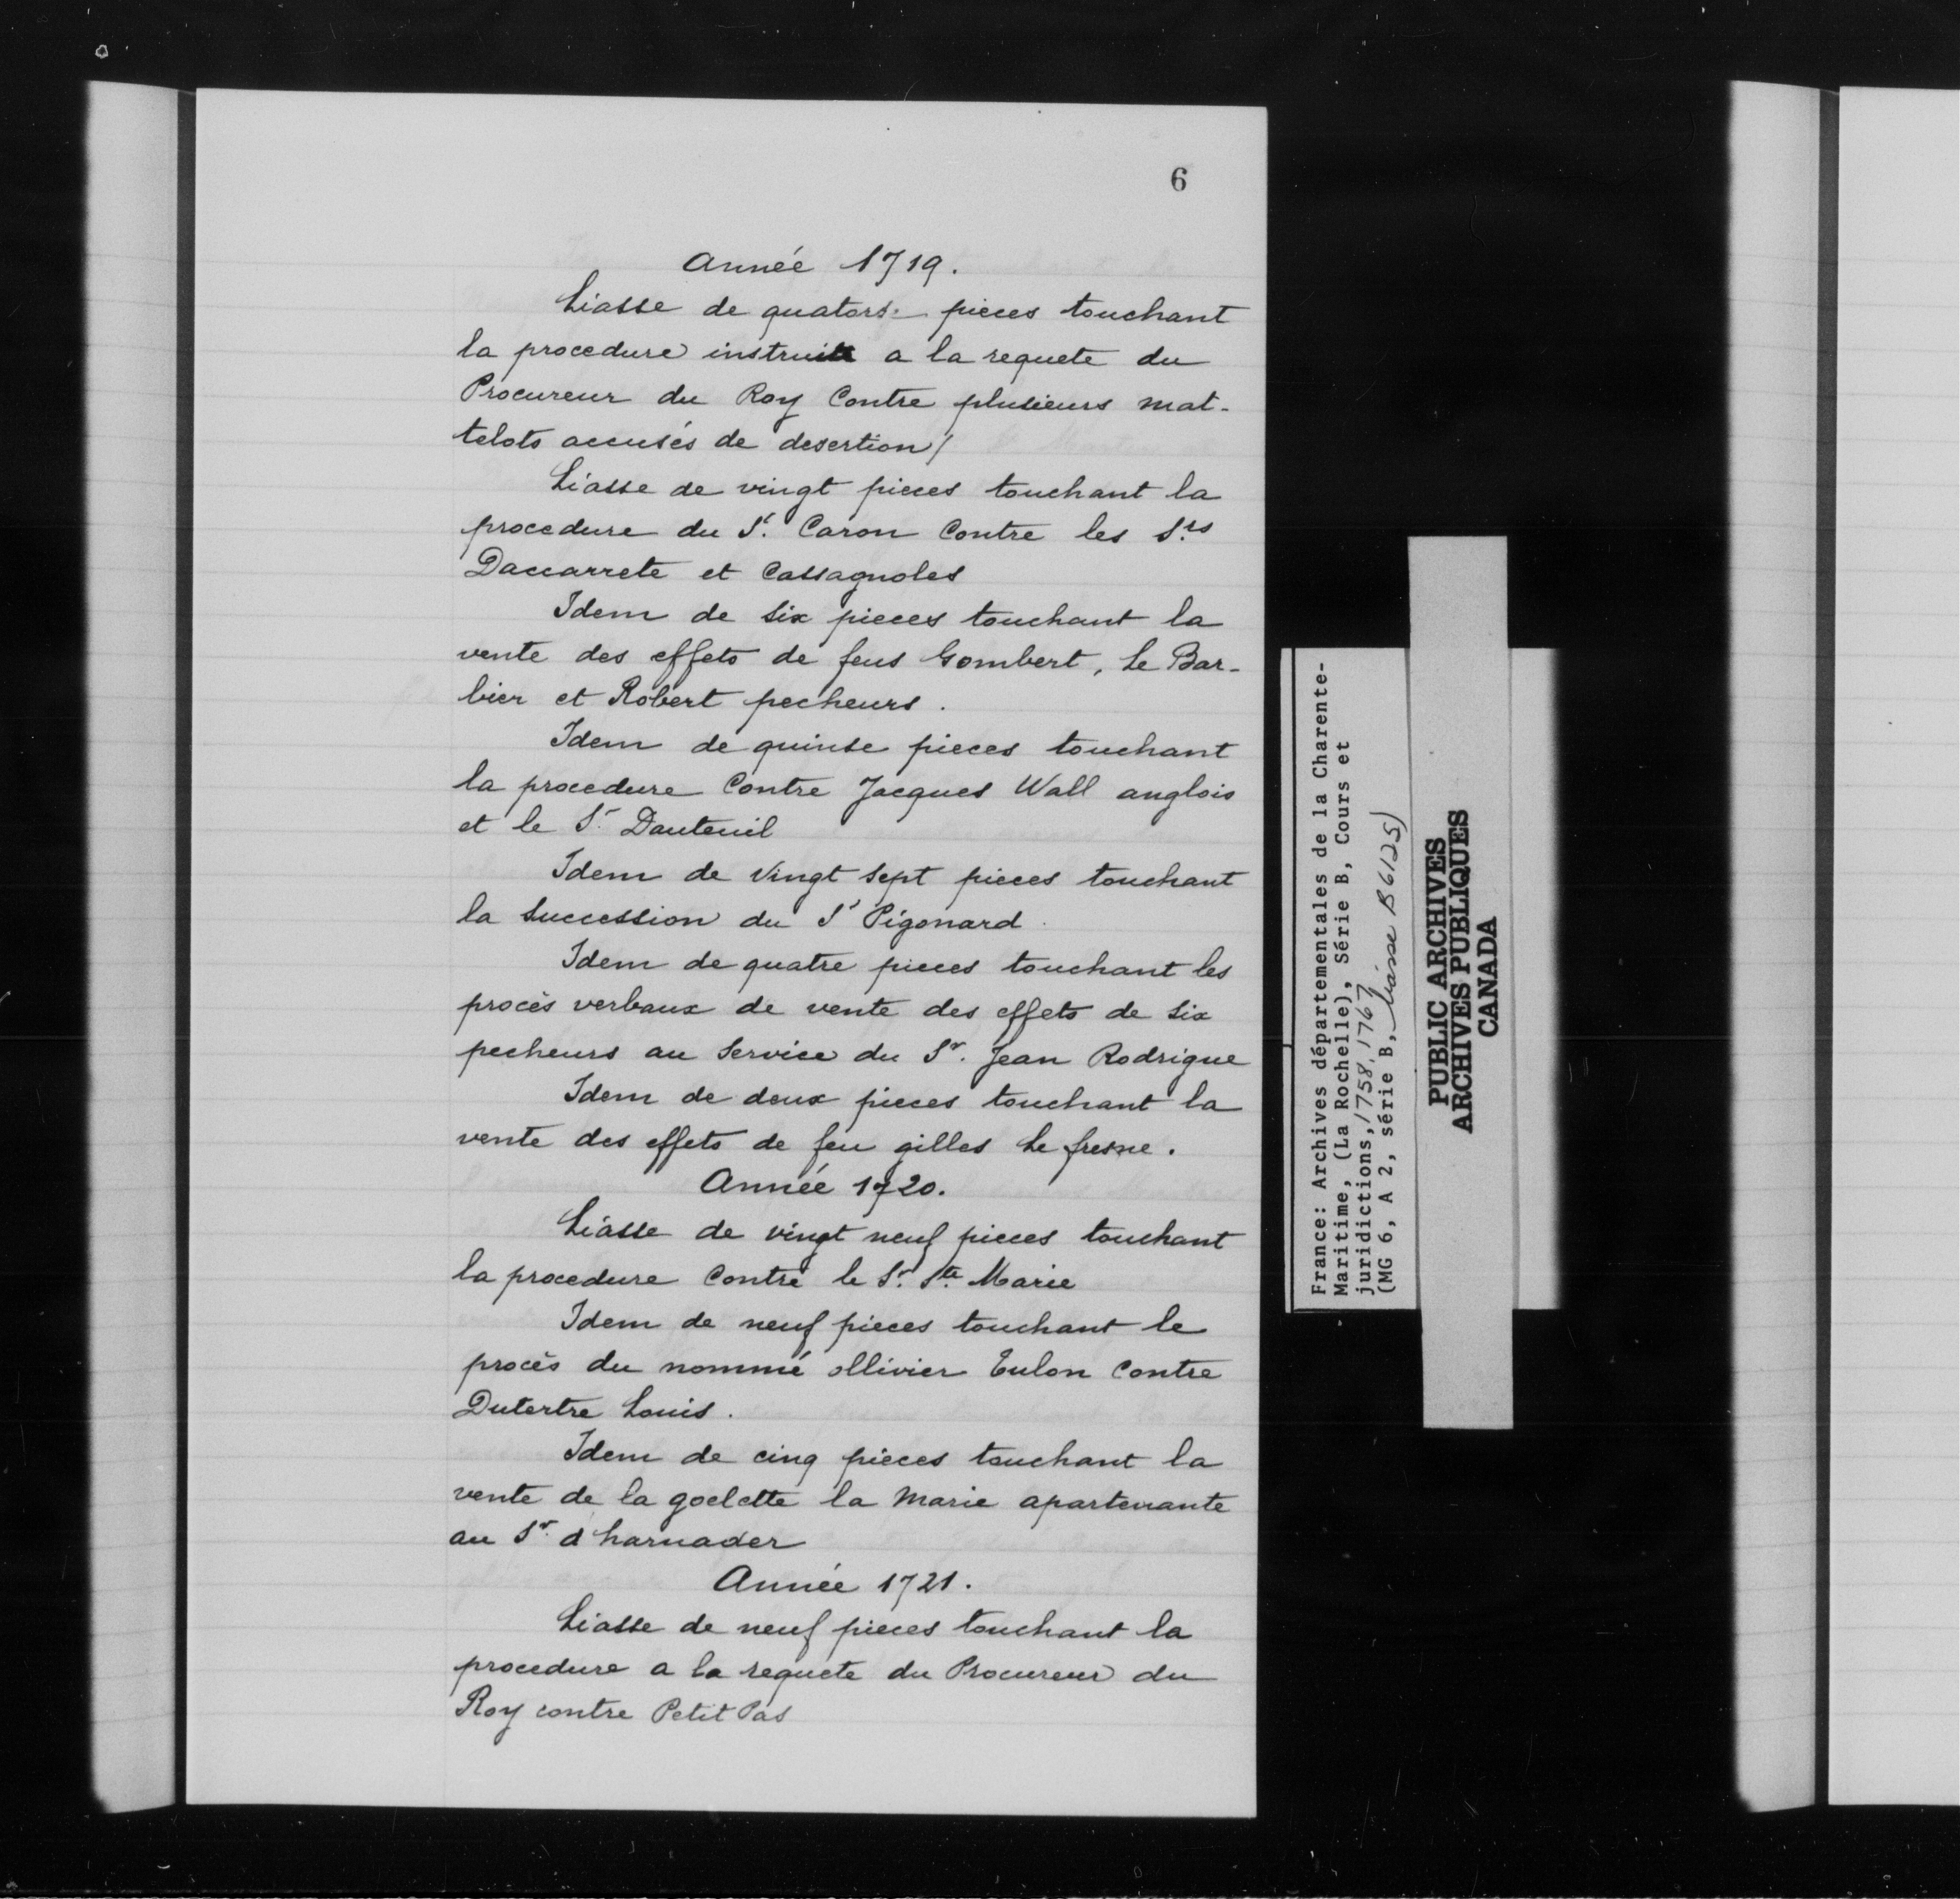 6
Année 1719.
Liasse de quators. pieces touchant
la procedure instruite a la requete du
Procureur du Roy Contre plusieurs mat-
telots accusés de desertion/
Liasse de vingt pieces touchant la
procedure du Sr. Caron Contre les Srs
Daccarrete et Cassagnoles
Idem de six pieces touchant la
vente des effets de feus Gombert, Le Bar-
bier et Robert pecheurs.
Idem de quinse pieces touchant
la procedure Contre Jacques Wall anglois
et le Sr. Dauteuil
Idem de Vingt sept pieces touchant
la Succession du Sr Pigonard
Idem de quatre pieces touchant les
procès verbaux de vente des effets de six
pecheurs au Service du Sr. Jean Rodrigue
Idem de deux pieces touchant la
vente des effets de feu gilles Le fresne.
Année 1720.
Liasse de vingt neuf pieces touchant
la procedure Contre le Sr. Ste. Marie
Idem de neuf pieces touchant le
procès du nommé ollivier Eulon Contre
Dutertre Louis.
Idem de cinq pièces touchant la
vente de la goelette la Marie apartenante
au Sr. d'harnader
Année 1721.
Liasse de neuf pieces touchant la
procedure a la requete du Procureur du
Roy contre Petit Pas
France: Archives départementales de la Charente-
Maritime, (La Rochelle), Série B, Cours et
juridictions, 1758, 1767
(MG 6, A 2, série B, liasse B6125)
PUBLIC ARCHIVES
ARCHIVES PUBLIQUES
CANADA